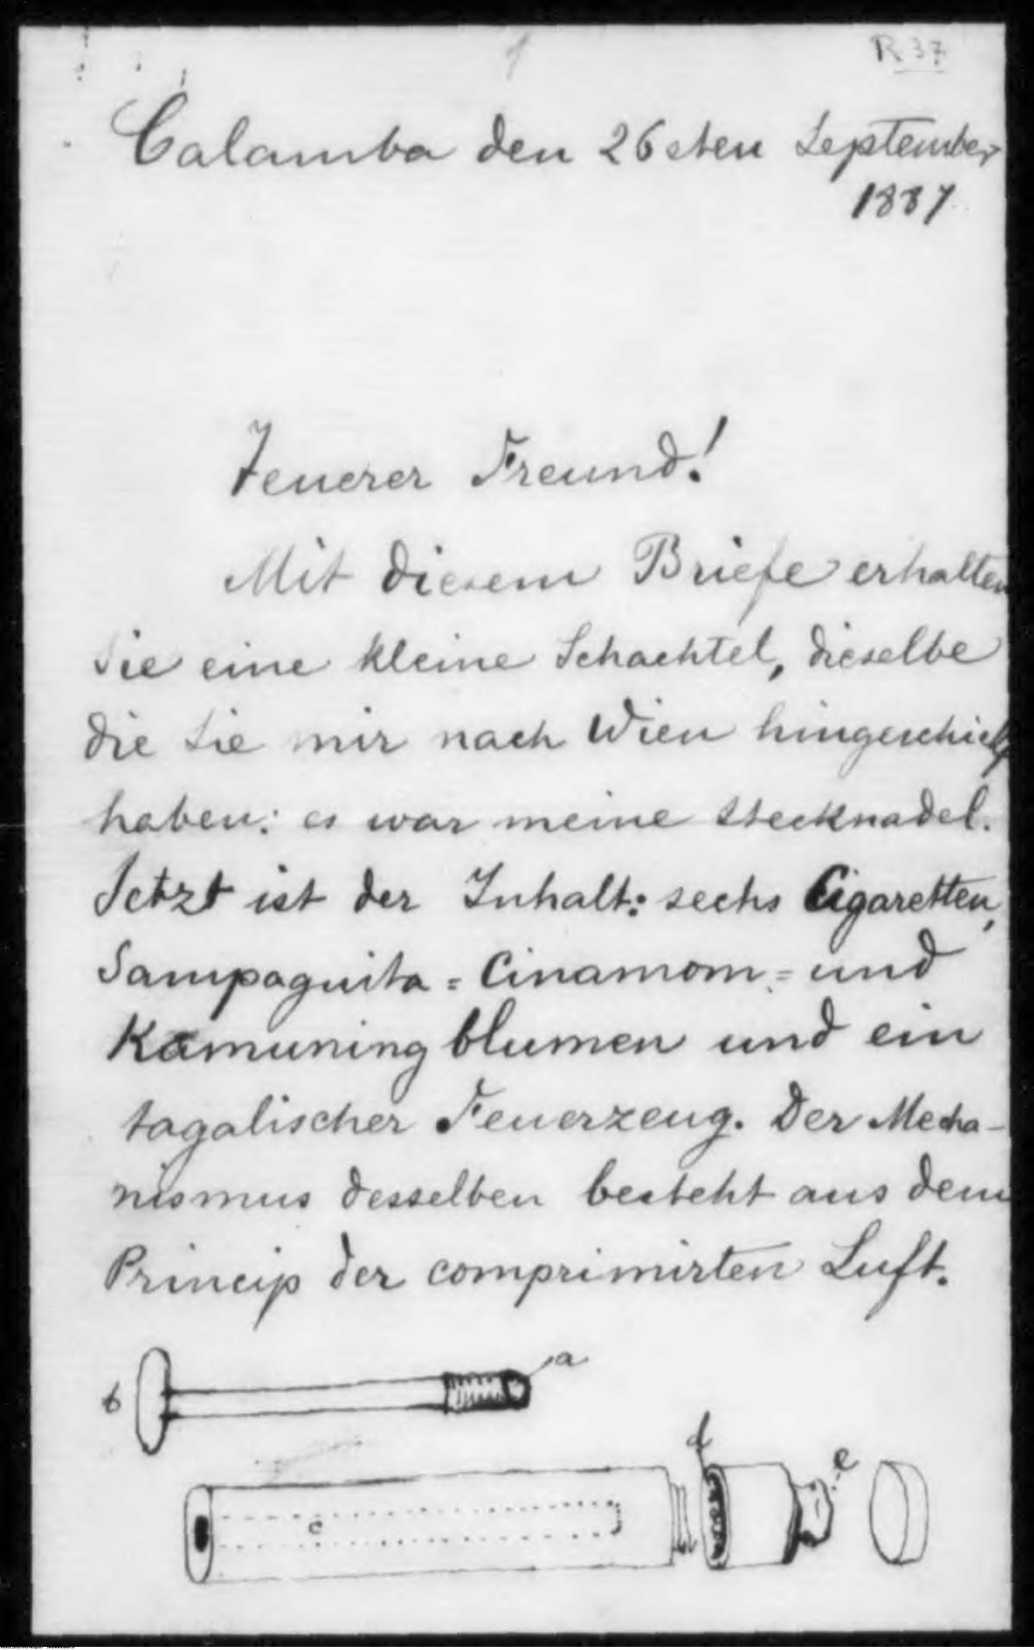 R. 37
Calamba den 26sten September
1887
Teuerer Freund!
Mit diesem Briefe erhalten
Sie eine kleine Schachtel, dieselbe
die Sie mir nach Wien hingeschickt
haben: es war meine Stecknadel.
Jetzt ist der Inhalt: sechs Cigaretten,
Sampaguita = Cinamom = und
Kamuning blumen und ein
tagalischer Feuerzeug. Der Mecha-
nismus desselben besteht aus dem
Princip der comprimirten Luft.
a
b
d
e
c